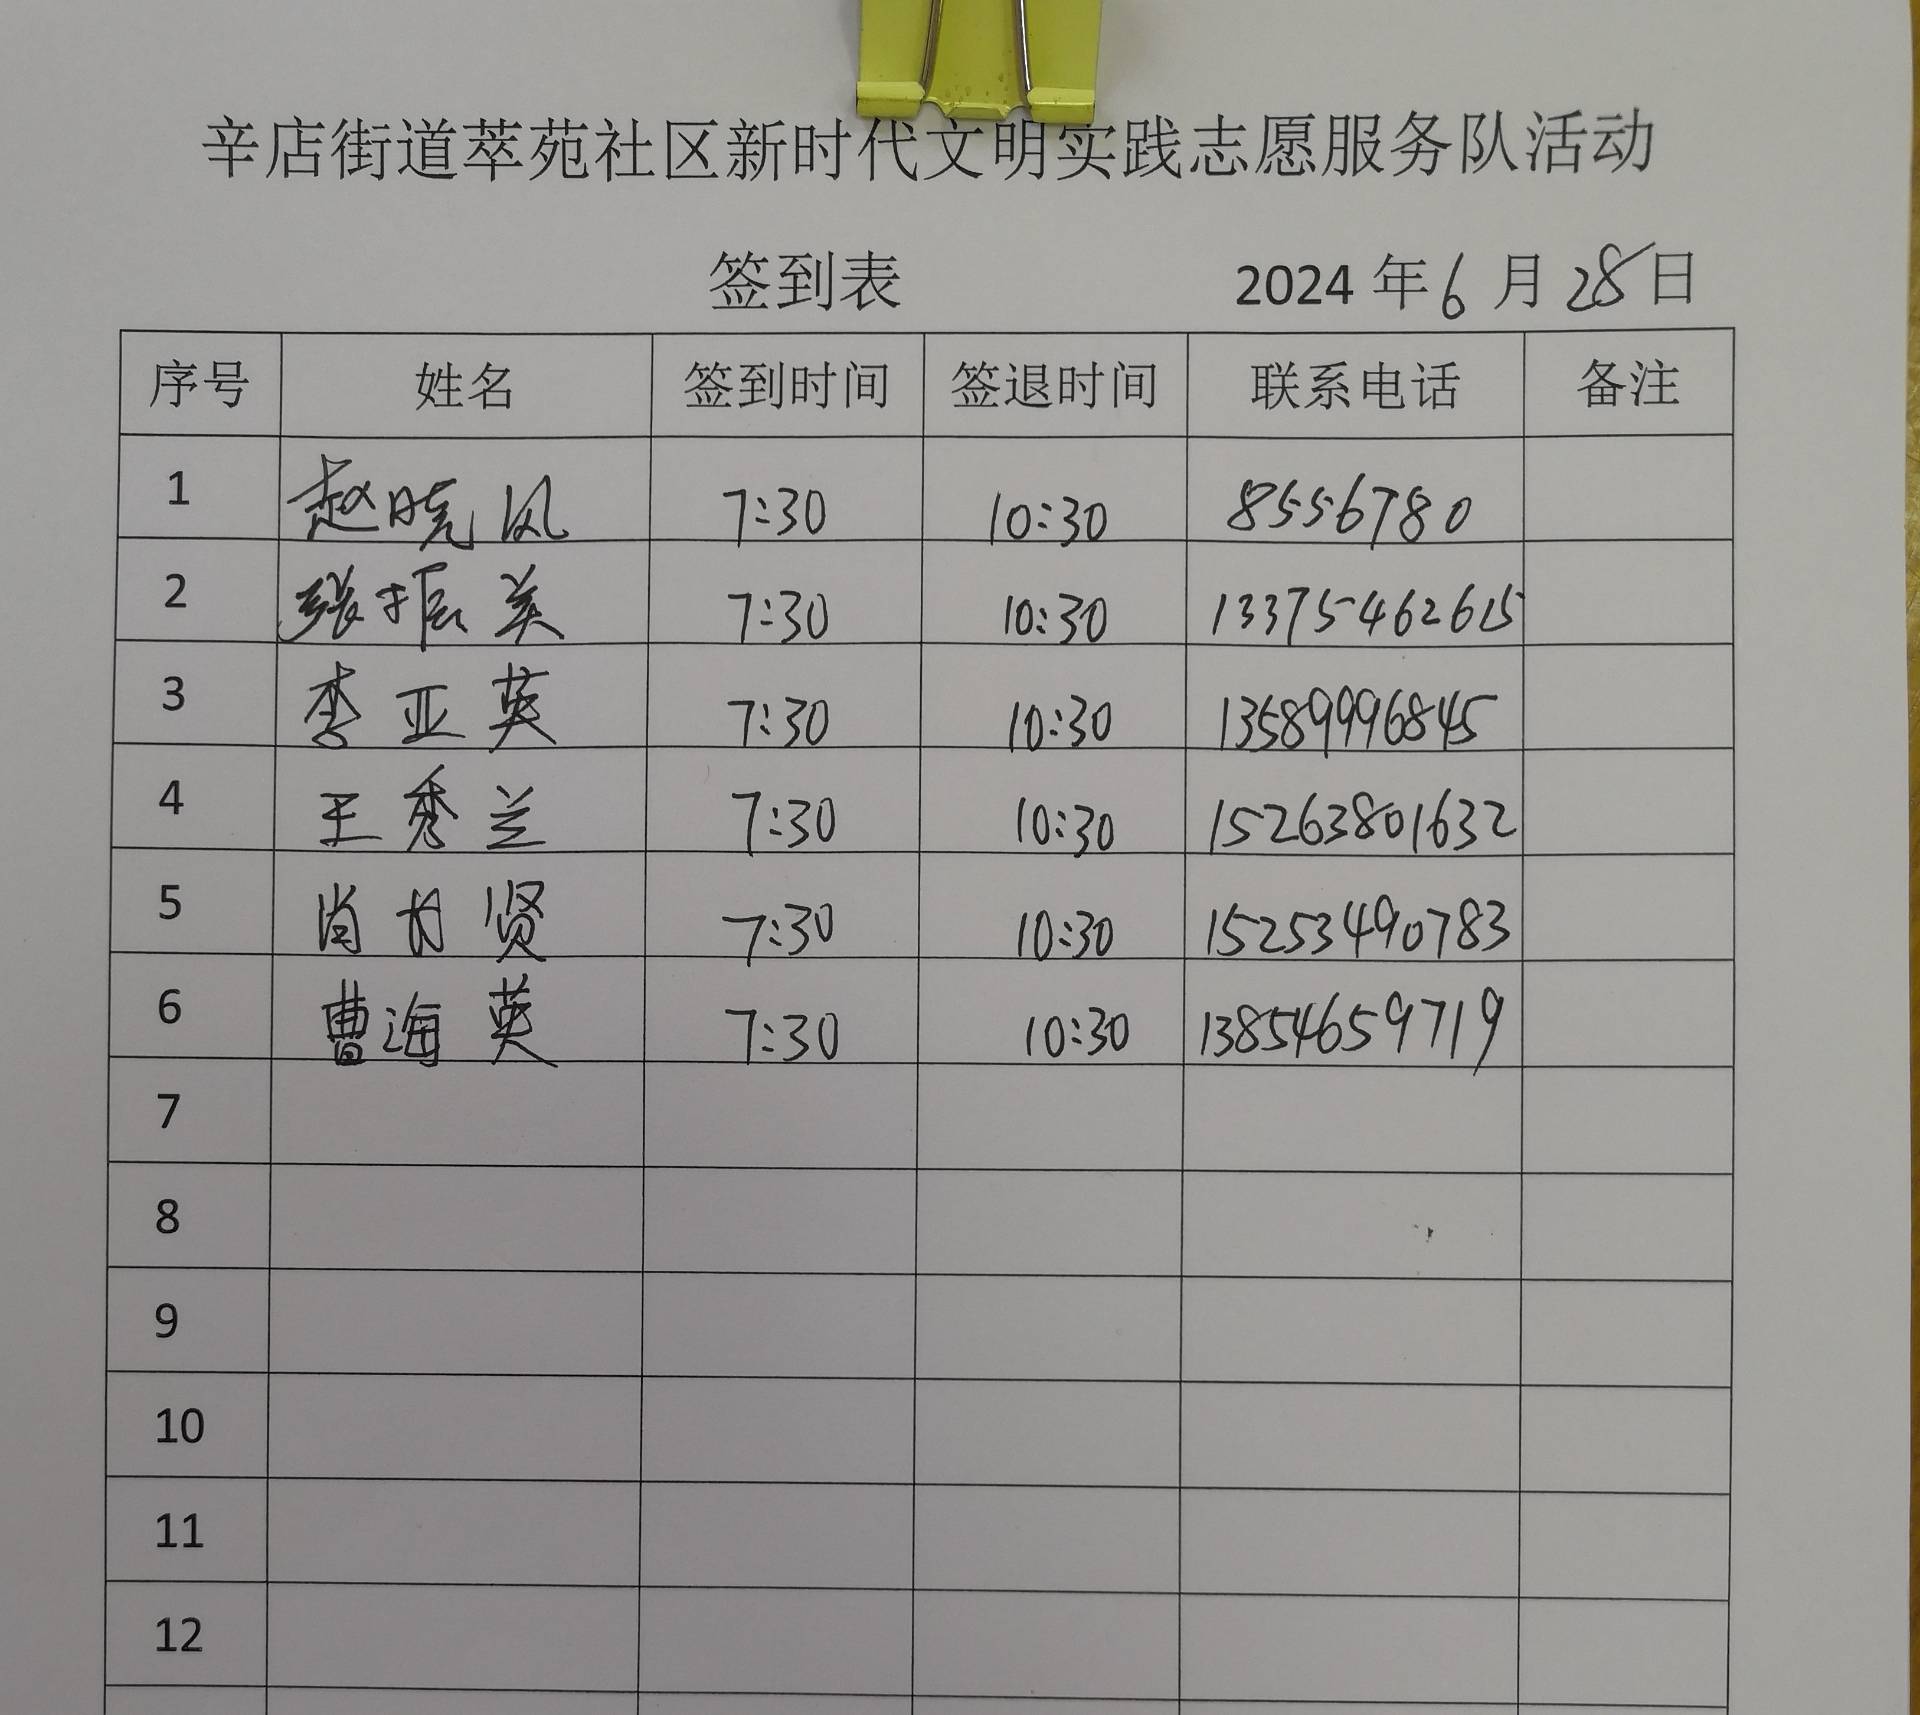 辛店街道萃苑社区新时代文明实践志愿服务队活动
签到表 2024年6月28日
序号 姓名 签到时间 签退时间 联系电话 备注
1 赵晓凤 7:30 10:30 8556780
2 张振英 7:30 10:30 13375462615
3 李亚英 7:30 10:30 13589996845
4 王秀兰 7:30 10:30 15263801632
5 肖 贤 7:30 10:30 15253490783
6 曹海英 7:30 10:30 13854659719
7
8
9
10
11
12